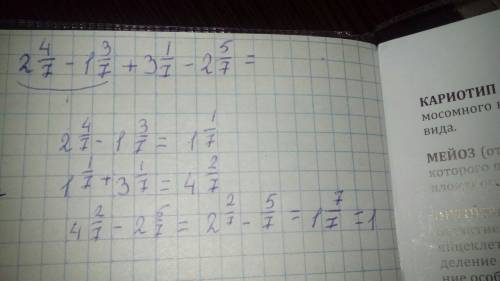 2 4/7 - 1 3/7 + 3 1/7 - 2 5/7 =
2 4/7 - 1 3/7 = 1 1/7
1 1/7 + 3 1/7 = 4 2/7
4 2/7 - 2 5/7 = 2 2/7 - 5/7 = 1 7/7 = 1
КАРИОТИП
мосомного
вида.
МЕЙОЗ (от
которого
деление
ние особ